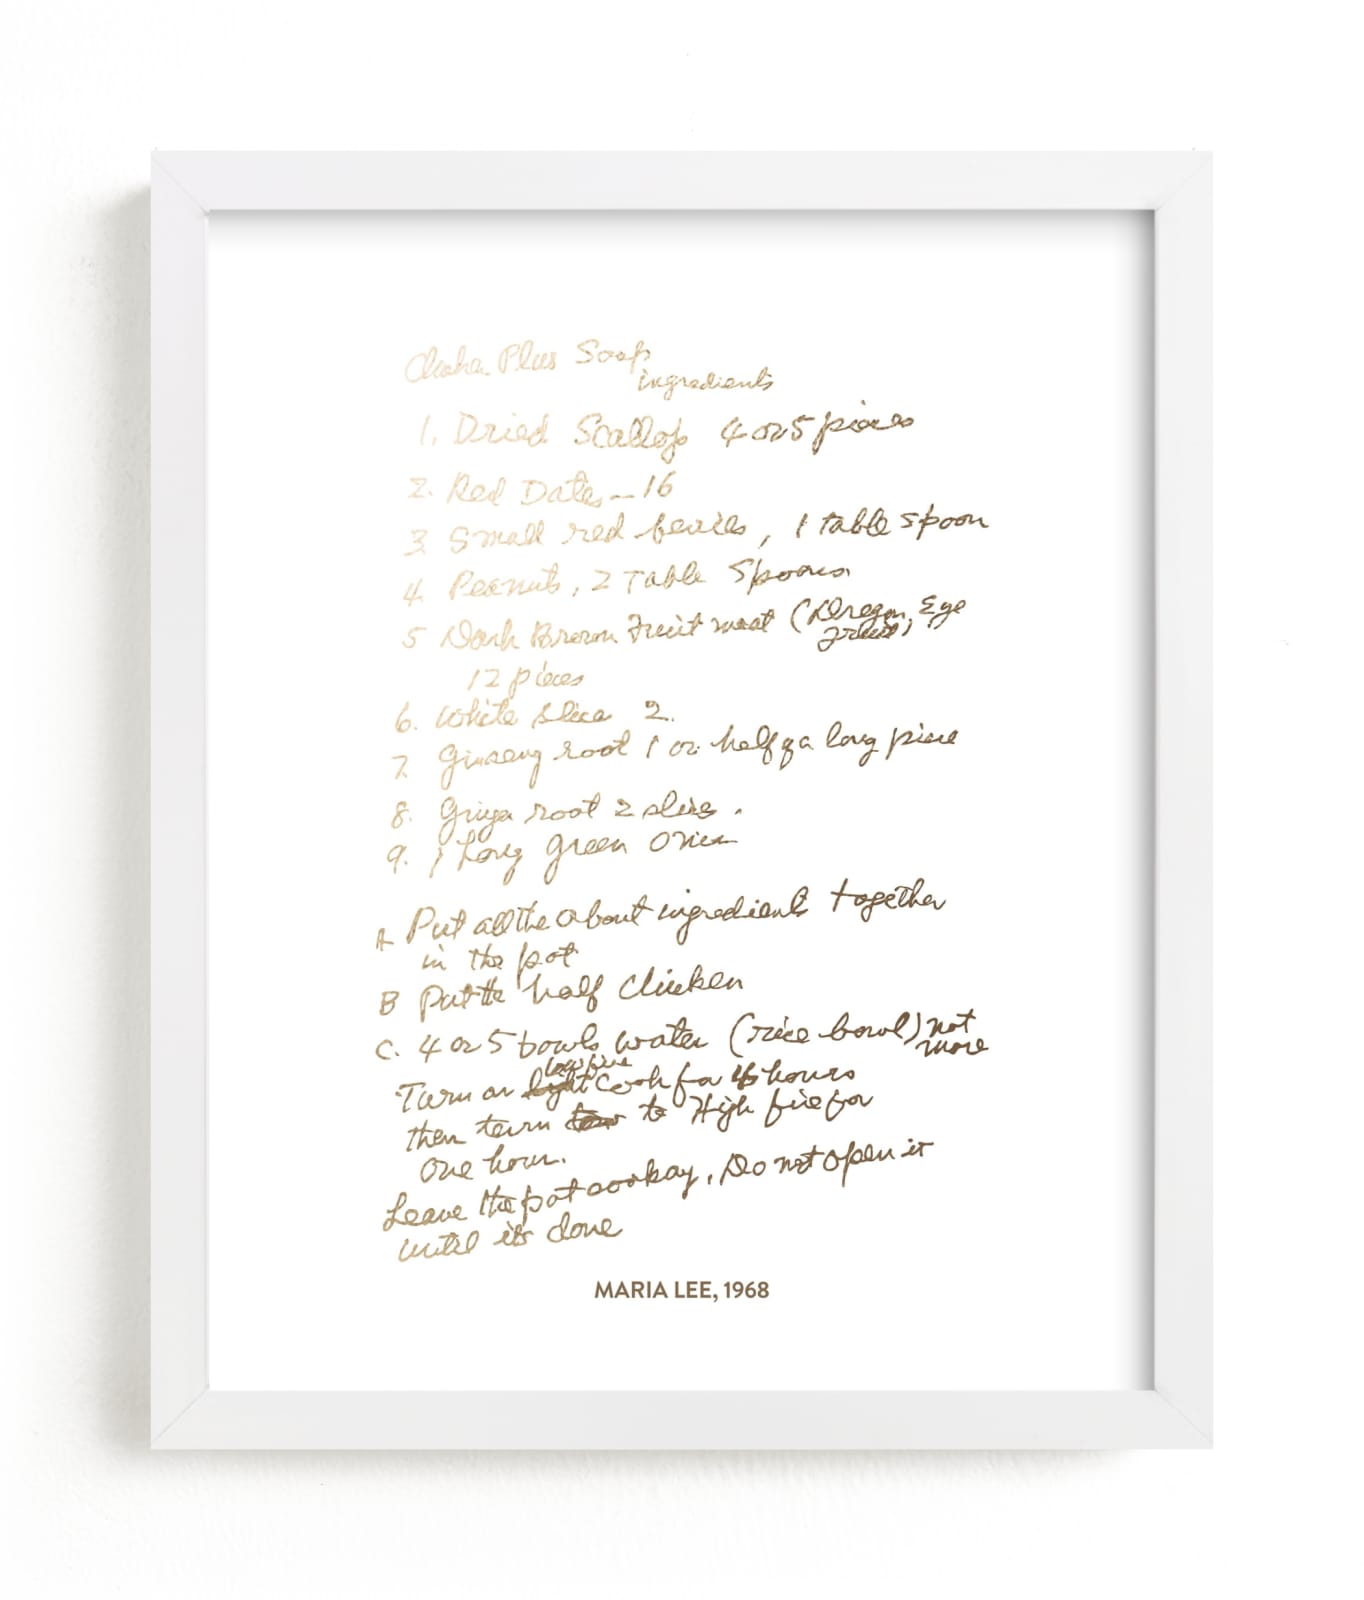 Plus Soap
ingredients
1. Dried Scallop 4 or 5 pieces
2. Red Dates - 16
3 Small red berries, 1 table spoon
4 Peanuts, 2 Table Spoons
5 Dark Brown Fruit meat (Dragon Eye
fruit)
12 pieces
6. White slice 2.
7. Ginseng root 1 or half of a long piece
8. Ginger root 2 slices.
9. 1 Long green onion
A Put all the about ingredients together
in the pot
B Put the half chicken
C. 4 or 5 bowls water (rice bowl) not
more
low fire
Turn on light Cook for hours
then turn to High fire for
One hour.
Leave the pot , Do not open it
until its done
MARIA LEE, 1968